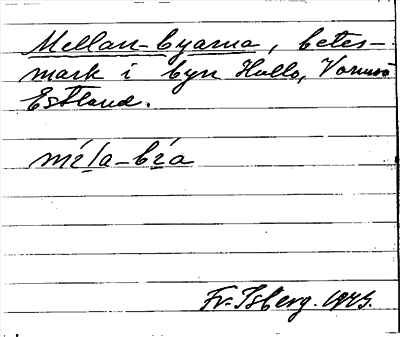 Mellan-byarna, betes-
mark i byn Hullo, Vormsö
Estland.
míla-bía
Fr. Isberg. 1945.